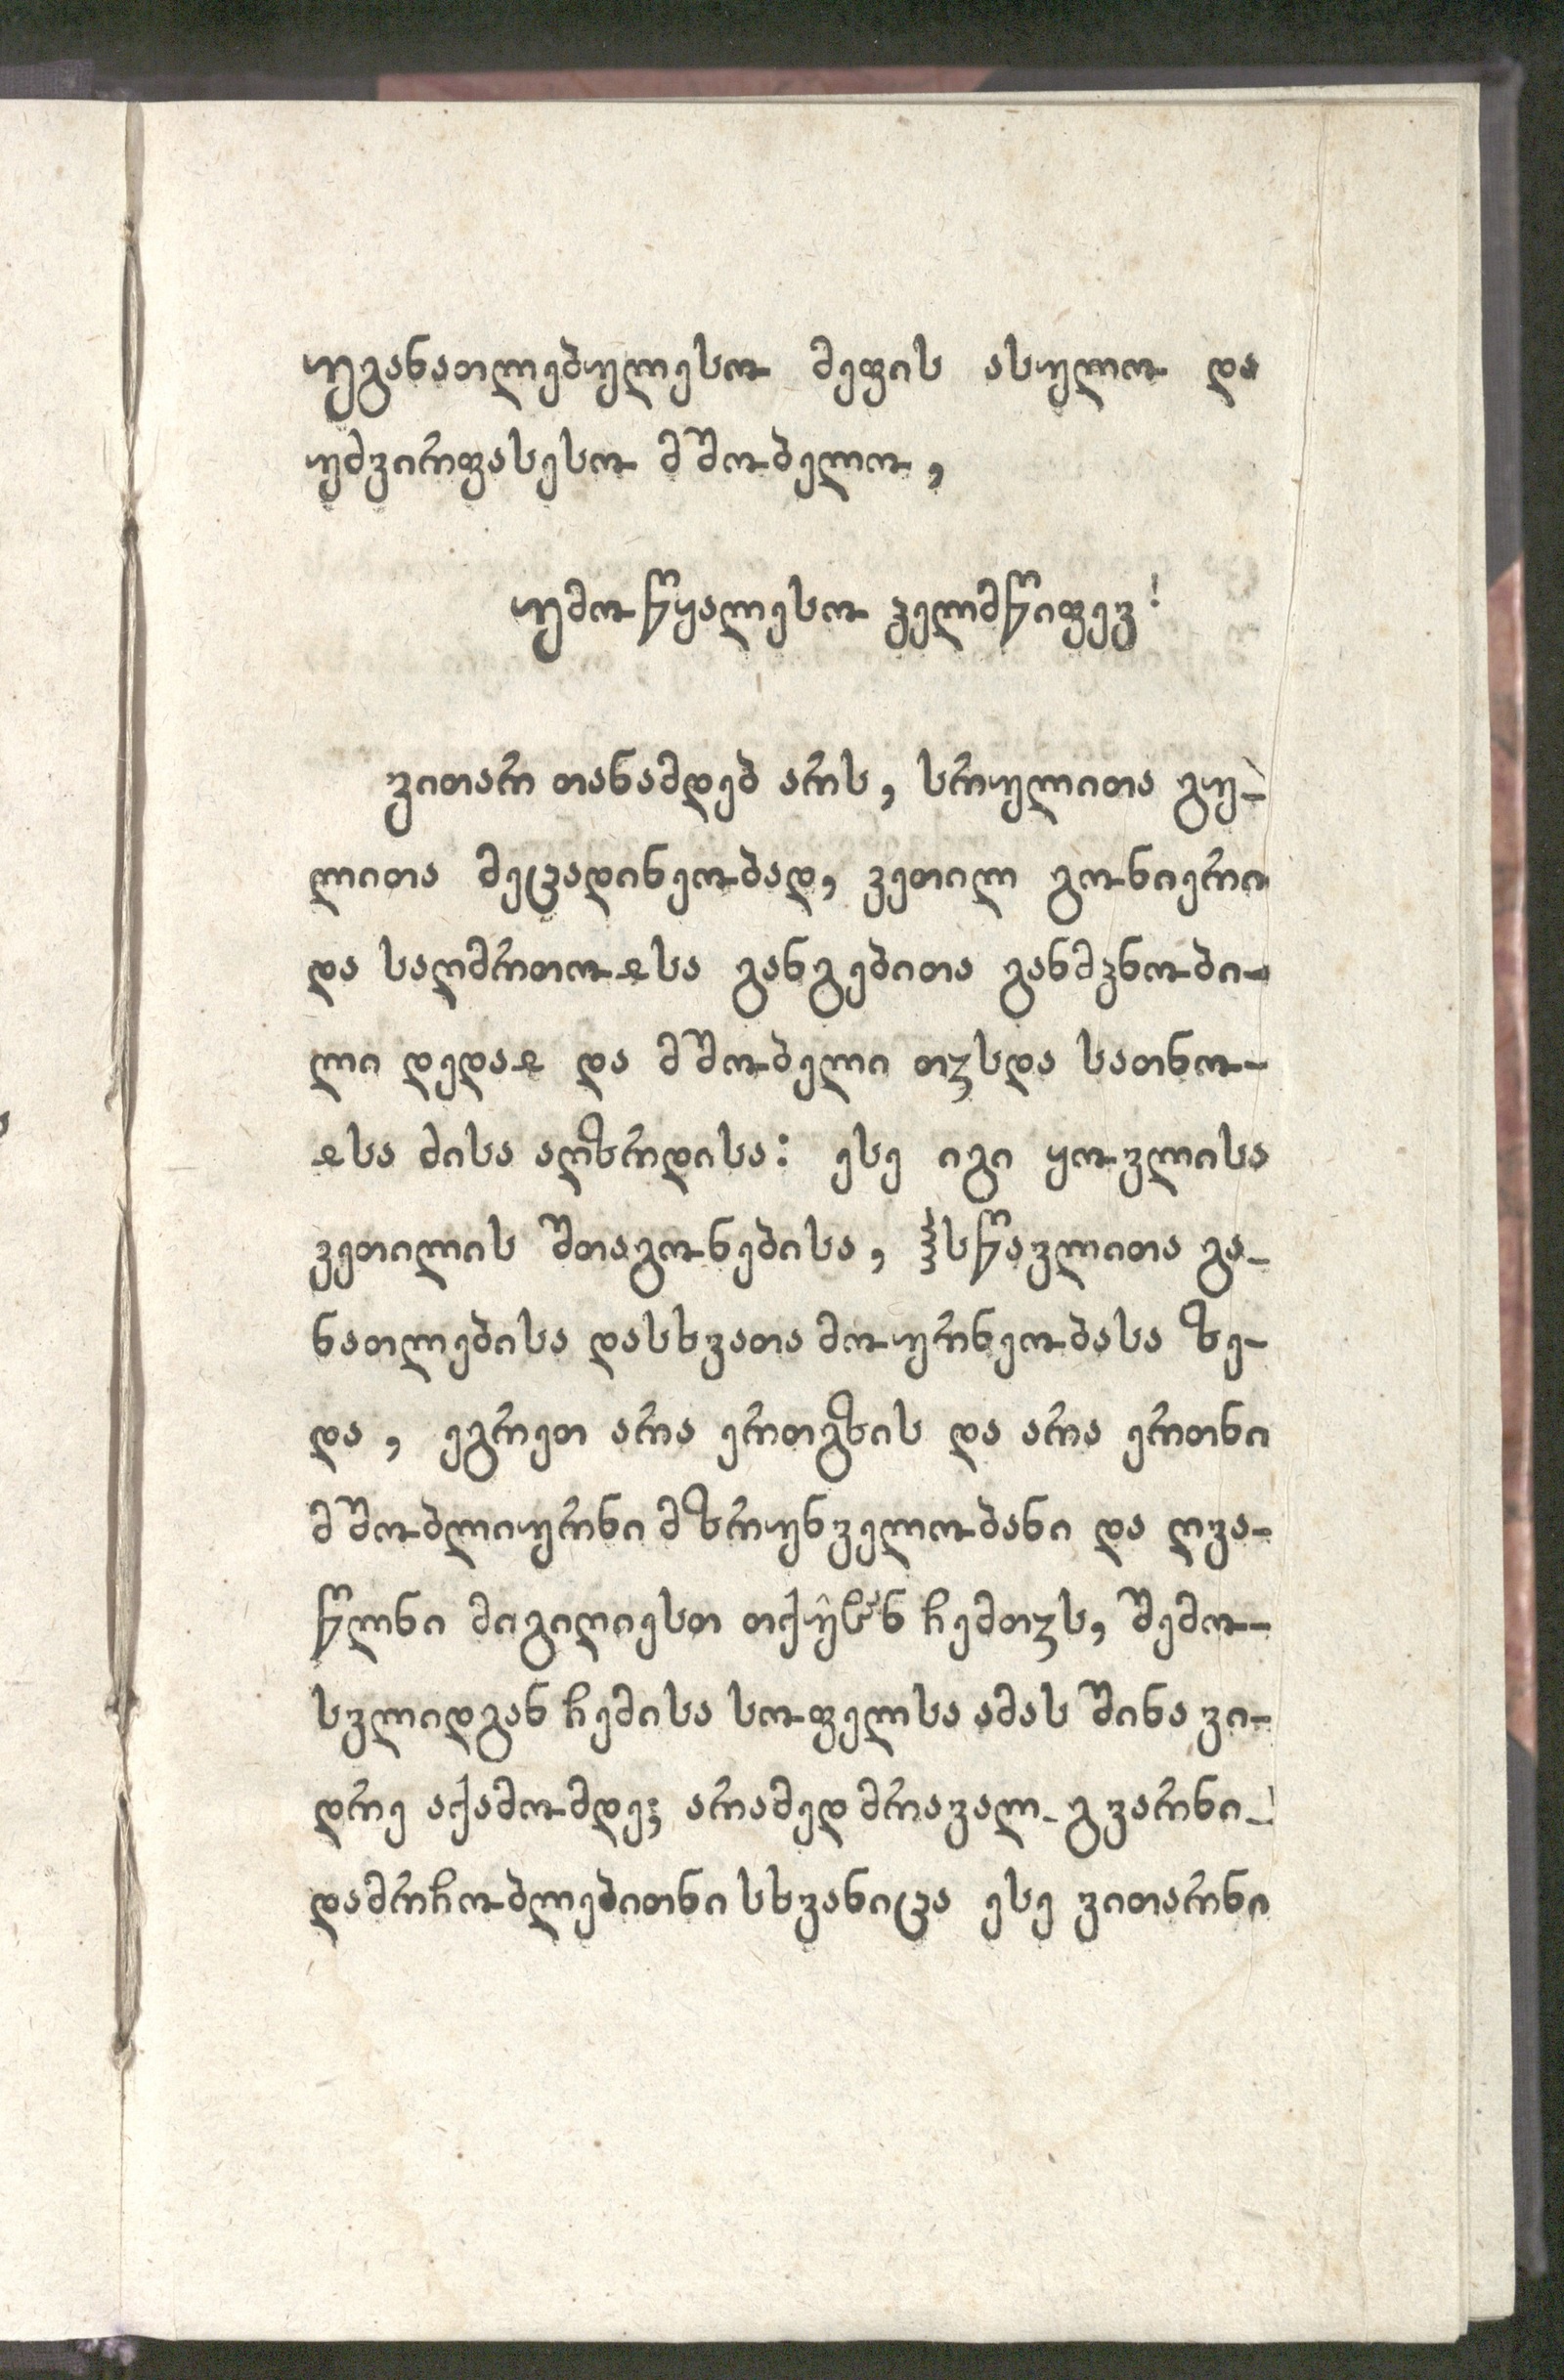 უგანათლებულესო მეფის ასულო და
უძვირფასესო მშობელო,
უმოწყალესო ჴელმწიფევ!
ვითარ თანამდებ არს, სრულითა გუ-
ლითა მეცადინეობად, კეთილ გონიერი
და საღმრთოჲსა განგებითა განმზნობი-
ლი დედაჲ და მშობელი თჳსდა სათნო-
ჲსა ძისა აღზრდისა: ესე იგი ყოვლისა
კეთილის შთაგონებისა, სწავლითა გა-
ნათლებისა დასხვათა მოურნეობასა ზე-
და, ეგრეთ არა ერთგზის და არა ერთნი
მშობლიურნი მზრუნველობანი და ღვა-
წლნი მიგიღიესთ ჩემთჳს, შემო-
სვლიდგან ჩემისა სოფელსა ამას შინა ვი-
დრე აქამომდე; არამედ მრავალ-გვარნი-
დამრჩობლებითნი სხვანიცა ესე ვითარნი